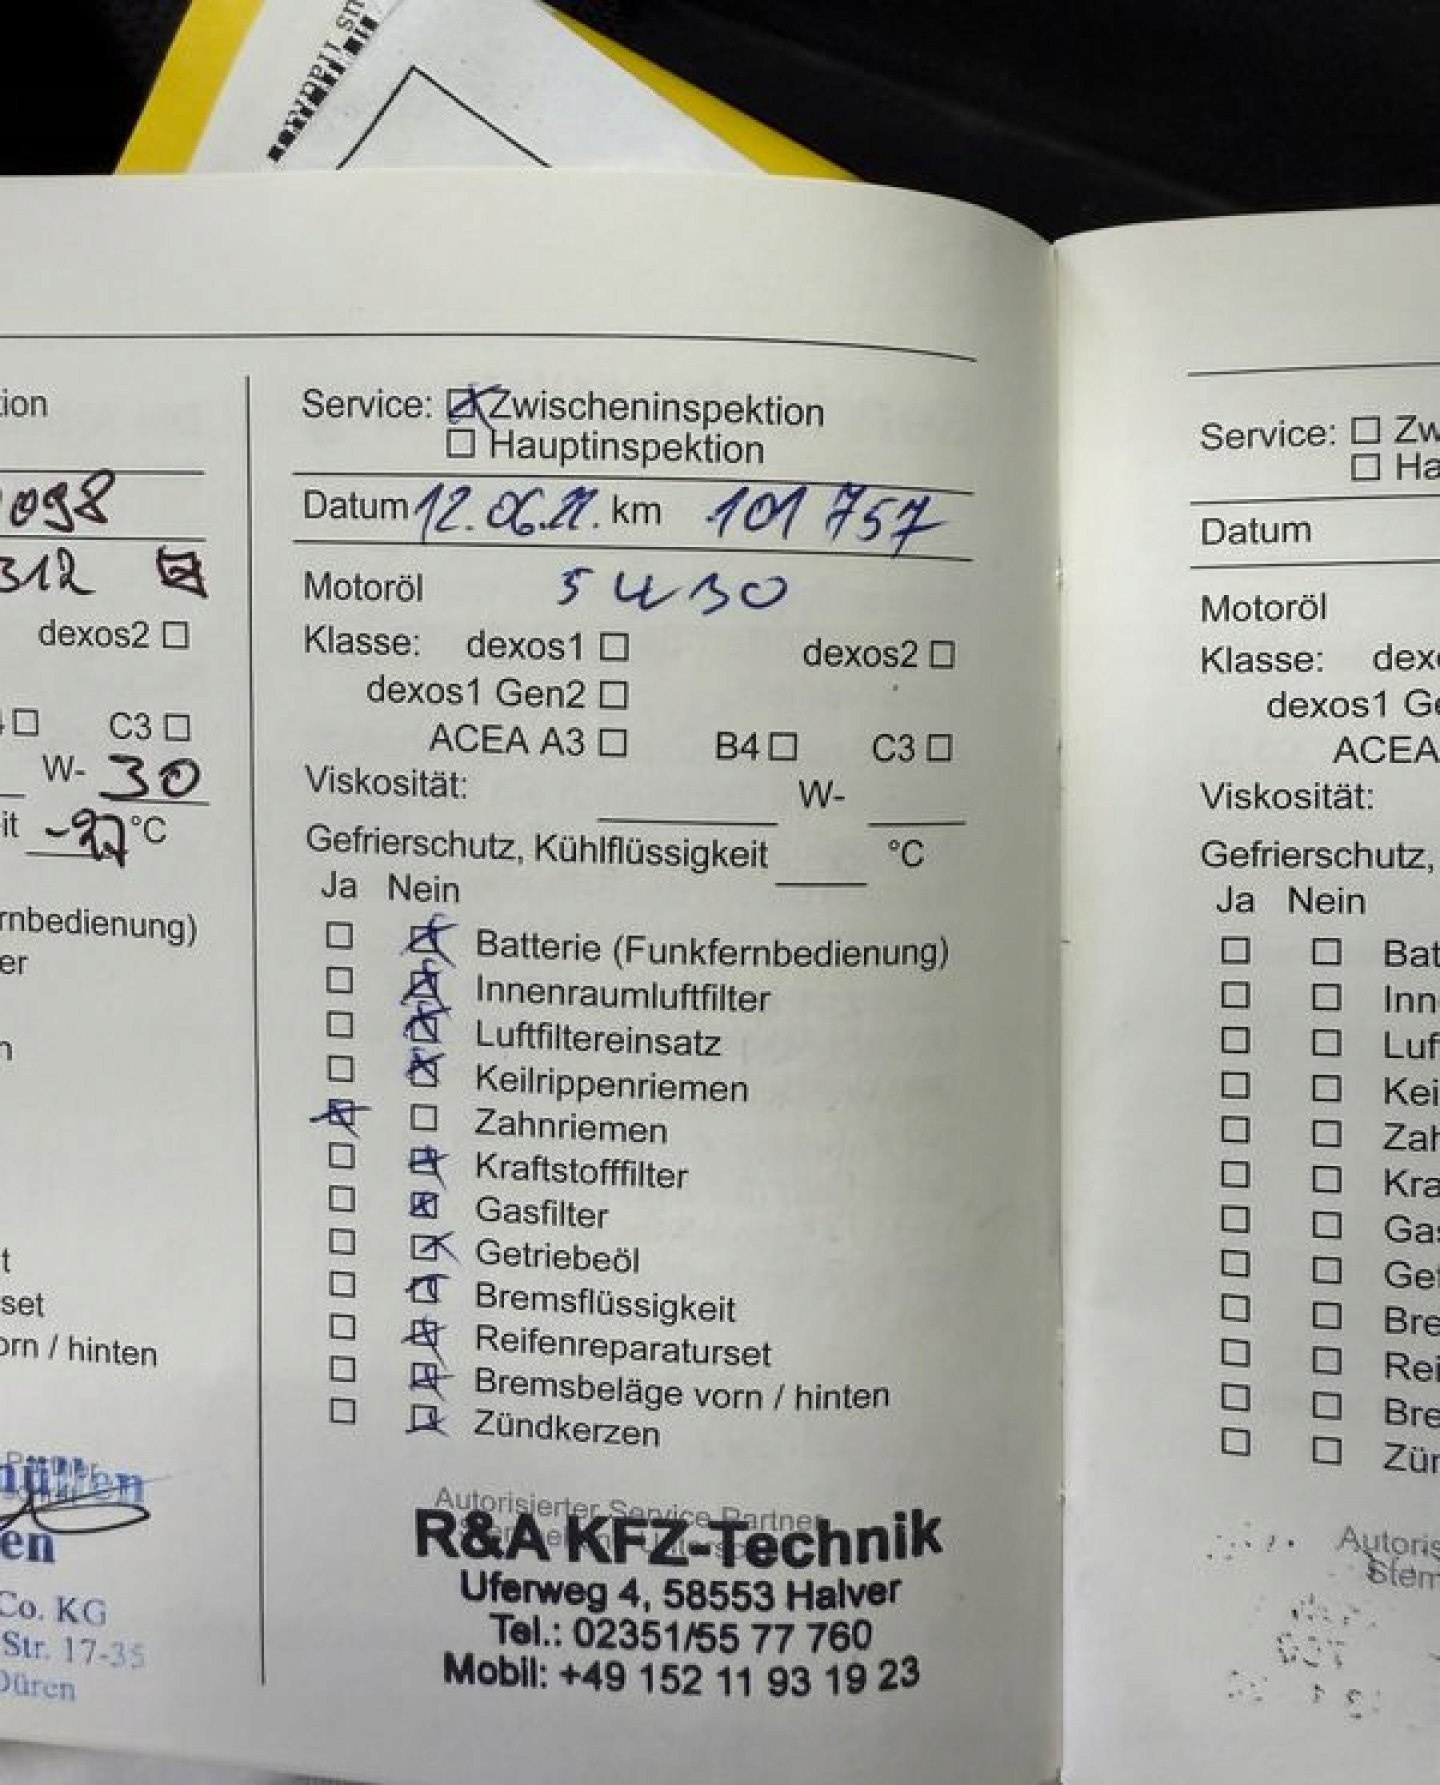 ion
098
312
dexos2
C3
W- 30
it -27 °C
rnbedienung)
er
n
t
set
orn / hinten
en
Co. KG
Str. 17-35
Düren
Service: Zwischeninspektion
Hauptinspektion
Datum 12.06.21. km 101 757
Motoröl 5W30
Klasse: dexos1 dexos2
dexos1 Gen2
ACEA A3 B4 C3
Viskosität: W-
Gefrierschutz, Kühlflüssigkeit °C
Ja Nein
Batterie (Funkfernbedienung)
Innenraumluftfilter
Luftfiltereinsatz
Keilrippenriemen
Zahnriemen
Kraftstofffilter
Gasfilter
Getriebeöl
Bremsflüssigkeit
Reifenreparaturset
Bremsbeläge vorn / hinten
Zündkerzen
Autorisierter Service Partner
R&A KFZ-Technik
Uferweg 4, 58553 Halver
Tel.: 02351/55 77 760
Mobil: +49 152 11 93 19 23
Service: Zw
Ha
Datum
Motoröl
Klasse: dexo
dexos1 Ge
ACEA
Viskosität:
Gefrierschutz,
Ja Nein
Bat
Inn
Luf
Kei
Zah
Kra
Gas
Get
Bre
Rei
Bre
Zün
Autoris
Stem